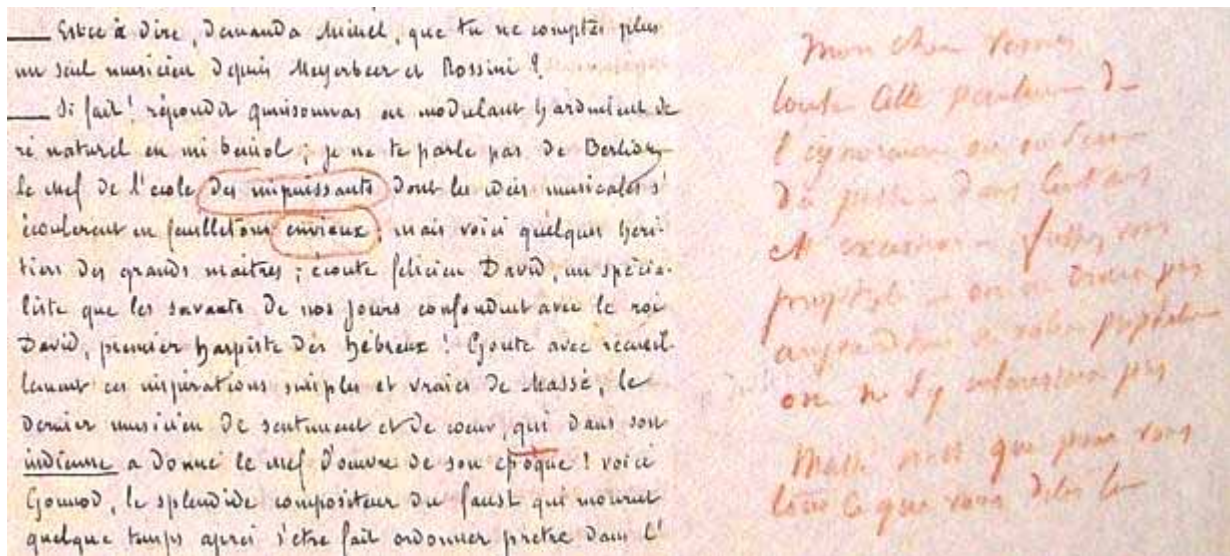 ___ Estce à dire, demanda Michel, que tu ne comptes plus
un seul musicien depuis Meyerbeer et Rossini ?
___ Si fait ! répondit quinsonnas en modulant hardiment de
ré naturel en mi bémol ; je ne te parle pas de Berlioz,
le chef de l'école des impuissants dont les idées musicales s'
écoulèrent en feuilletons envieux, mais voici quelques héri-
tiers des grands maîtres ; écoute félicien David, un spécia-
liste que les savants de nos jours confondent avec le roi
David, premier harpiste des hébreux ! Goute avec recueil-
lement ces inspirations simples et vraies de Massé, le
dernier musicien de sentiment et de coeur, qui dans son
indienne a donné le chef d'oeuvre de son époque ! voici
Gounod, le splendide compositeur du faust qui mourut
quelque temps après s'être fait ordonner prêtre dans l'
Mon cher
toute cette peinture de
l'ignorance ou on sera
du passé dans cent ans
est excessive
prophète on ne croira pas
aujourd'hui à votre prophétie
on ne s'y intéressera pas
Massé n'est que pour vous
tout ce que vous dites